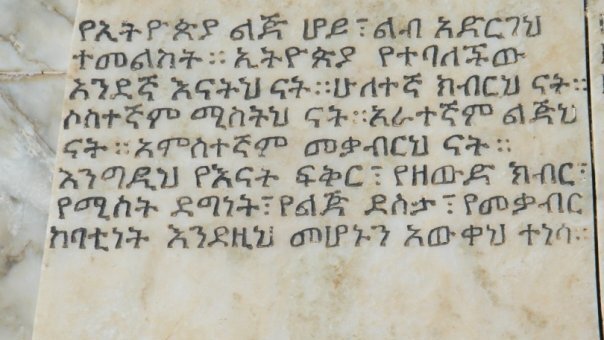 የኢትዮጵያ ልጅ ሆይ ፣ ልብ አድርገህ
ተመልከት ። ኢትዮጵያ የተባለችው
አንደኛ እናትህ ናት ። ሁለተኛ ክብርህ ናት ።
ሶስተኛም ሚስትህ ናት ። አራተኛም ልጅህ
ናት ። አምስተኛም መቃብርህ ናት ።
እንግዲህ የእናት ፍቅር ፣ የዘውድ ክብር ፣
የሚስት ደግነት ፣ የልጅ ደስታ ፣ የመቃብር
ከባቲነት እንደዚህ መሆኑን አውቀህ ተነሳ ።